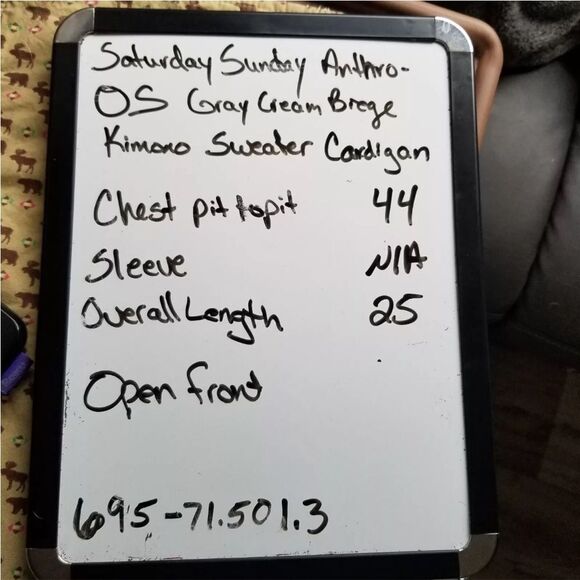 Saturday Sunday Anthro-
OS Gray Cream Brege
Kimono Sweater Cardigan
Chest pit to pit 44
Sleeve N/A
Overall Length 25
Open front
695-71.501.3